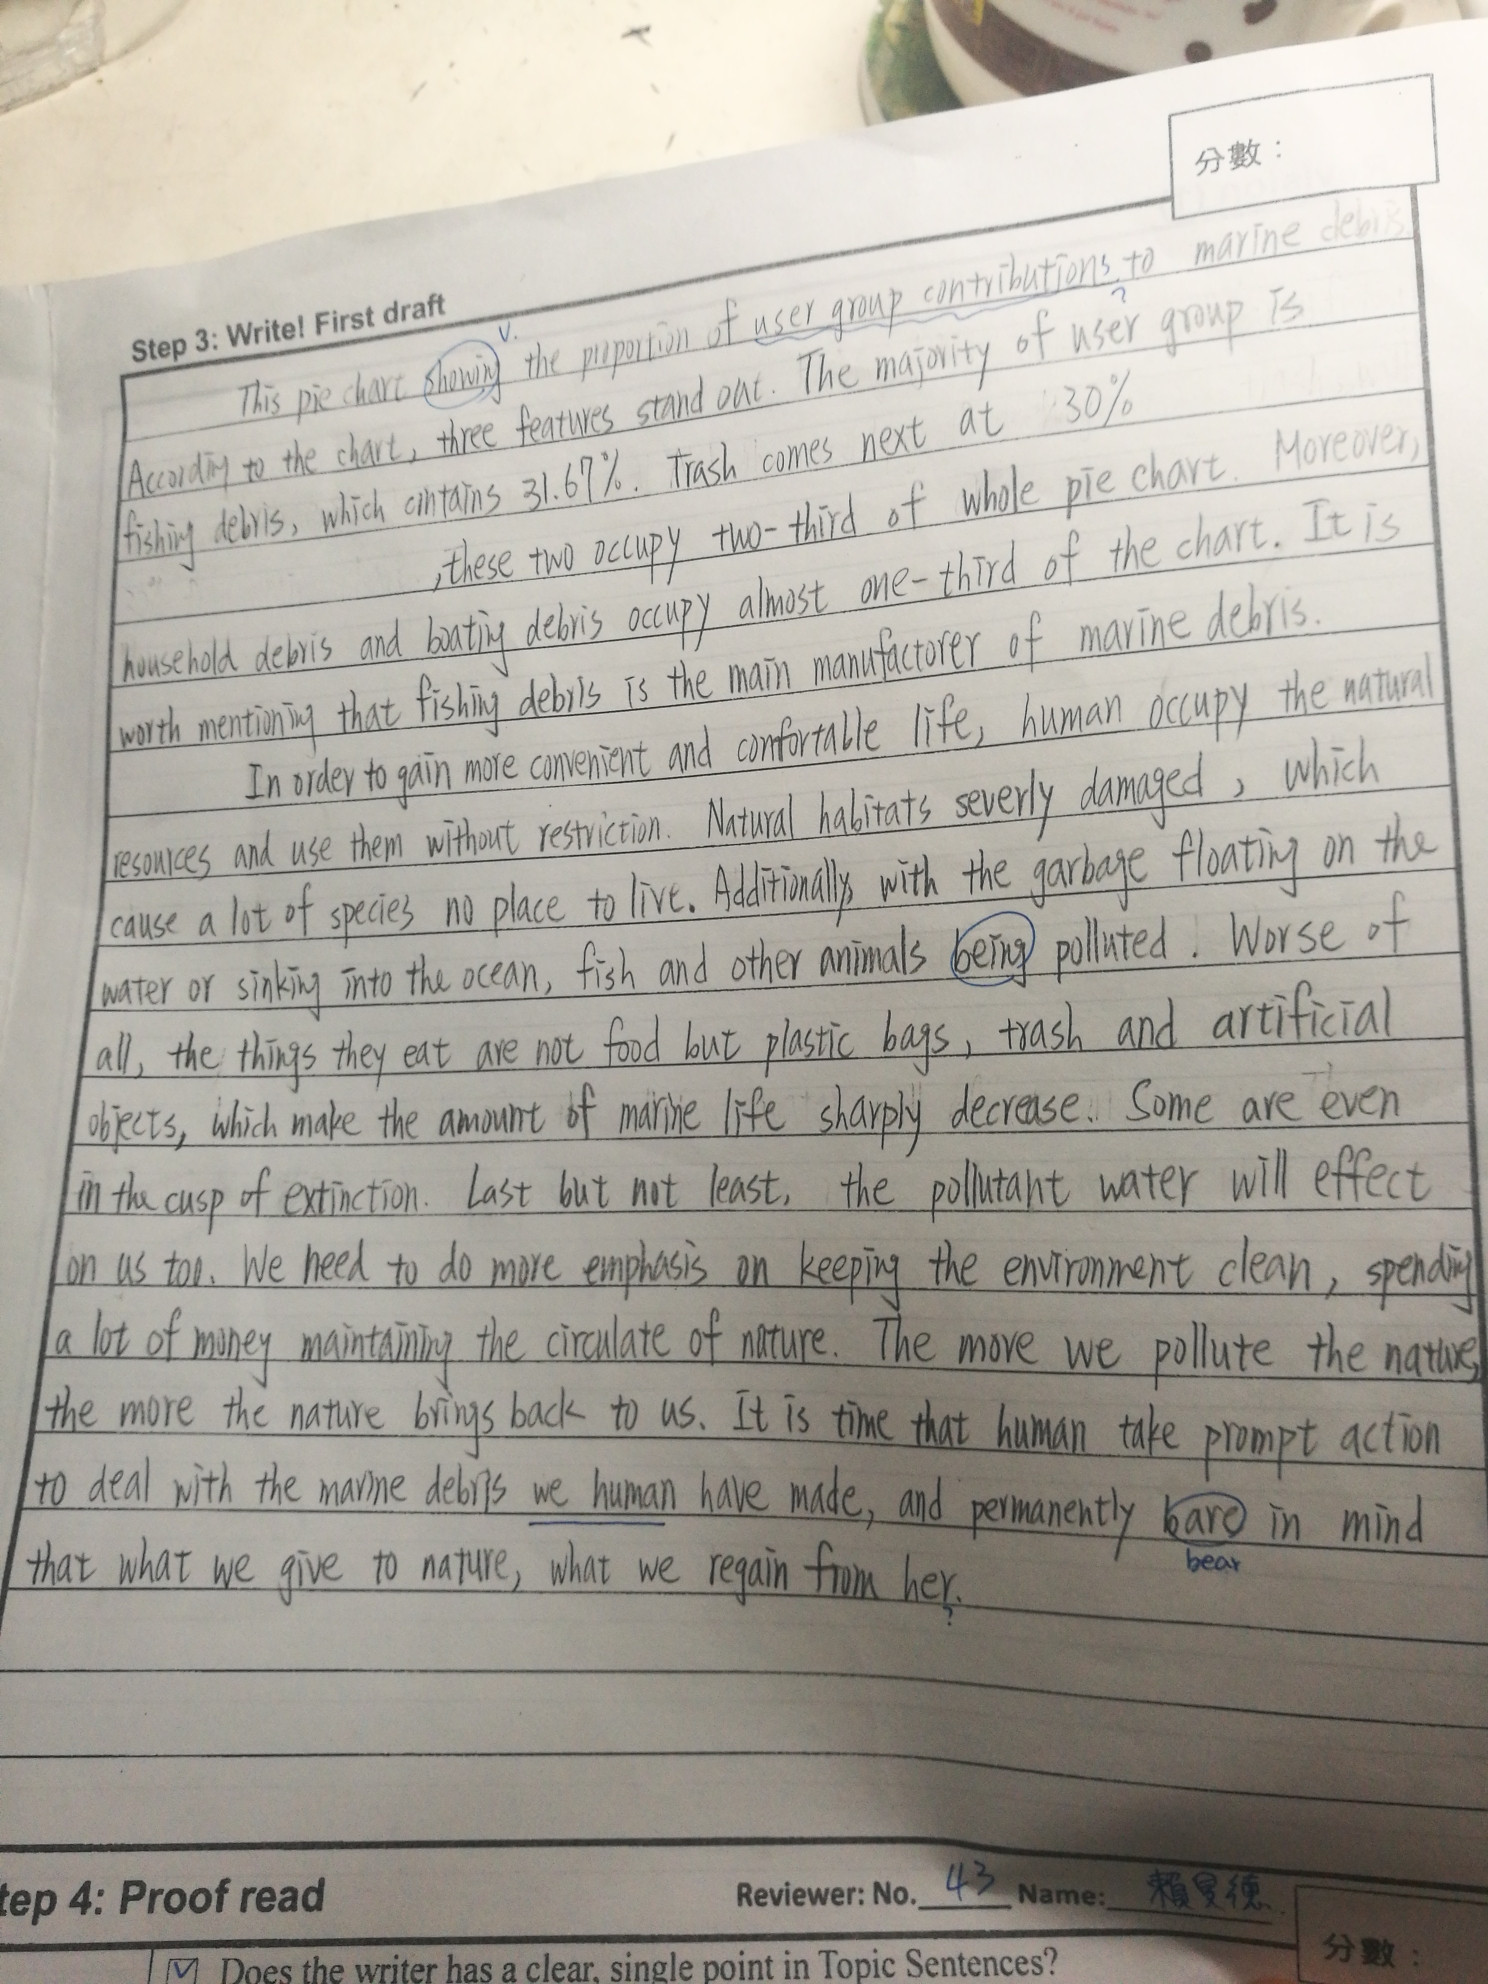 分數：
Step 3: Write! First draft
v.
This pie chart showing the proportion of user group contributions to marine debris.
?
According to the chart, three features stand out. The majority of user group is
fishing debris, which cintains 31.67%. Trash comes next at 30%
, these two occupy two-third of whole pie chart. Moreover,
household debris and boating debris occupy almost one-third of the chart. It is
worth mentioning that fishing debris is the main manufactorer of marine debris.
In order to gain more convenient and comfortable life, human occupy the natural
resources and use them without restriction. Natural habitats severly damaged, which
cause a lot of species no place to live. Additionally, with the garbage floating on the
water or sinking into the ocean, fish and other animals being polluted. Worse of
all, the things they eat are not food but plastic bags, trash and artificial
objects, which make the amount of marine life sharply decrease. Some are even
in the cusp of extinction. Last but not least, the pollutant water will effect
on us too. We need to do more emphasis on keeping the environment clean, spending
a lot of money maintaining the circulate of nature. The more we pollute the nature,
the more the nature brings back to us. It is time that human take prompt action
to deal with the marine debris we human have made, and permanently bare in mind
bear
that what we give to nature, what we regain from her.
?
tep 4: Proof read
Reviewer: No. 43 Name: 賴旻德
分數：
☑ Does the writer has a clear, single point in Topic Sentences?